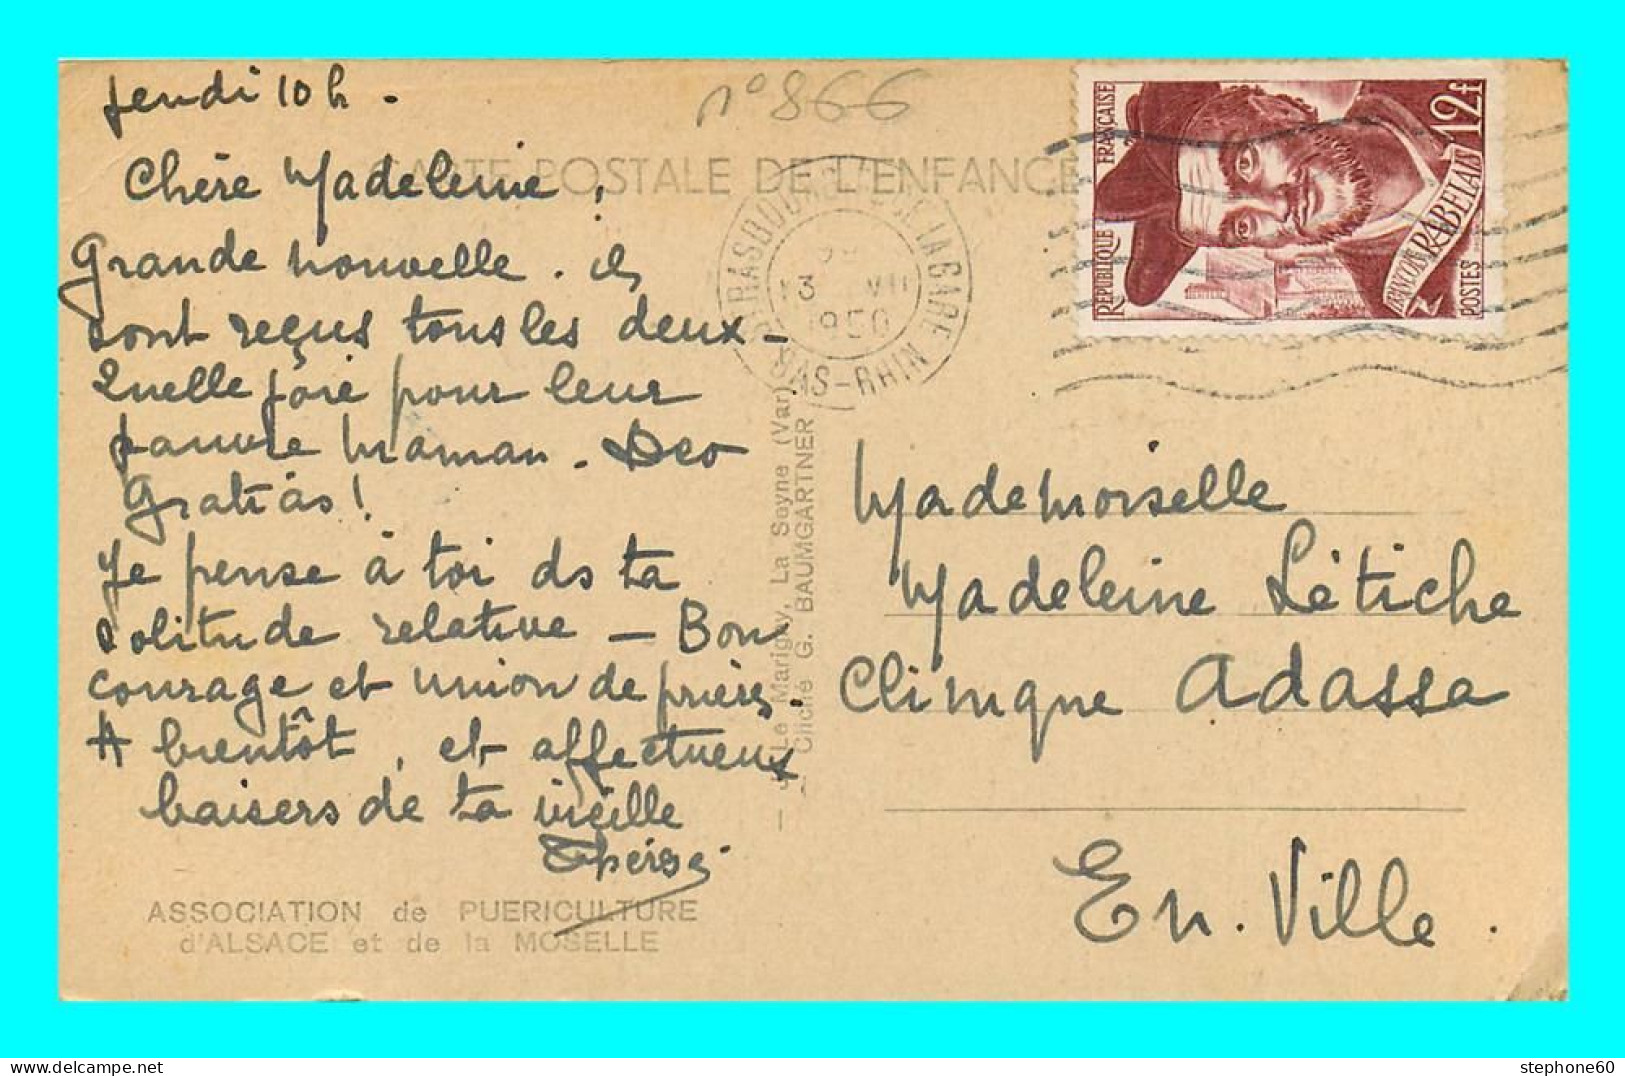 Jeudi 10 h.
n° 866
CARTE POSTALE DE L'ENFANCE
Chère Madeleine,
Grande nouvelle. ils
sont reçus tous les deux –
Quelle joie pour leur
pauvre maman. Deo
Gratias!
Je pense à toi ds ta
solitude relative – Bon
courage et union de prières.
A bientôt, et affectueux
baisers de ta vieille
ASSOCIATION de PUERICULTURE
d'ALSACE et de la MOSELLE
Le Marigny, La Seyne (Var)
Cliché G. BAUMGARTNER
STRASBOURG LA GARE
13 VII
1950
BAS-RHIN
REPUBLIQUE FRANÇAISE
12f
FRANÇOIS RABELAIS
POSTES
Mademoiselle
Madeleine Létiche
Clinique Adassa
En. Ville.
stephone60